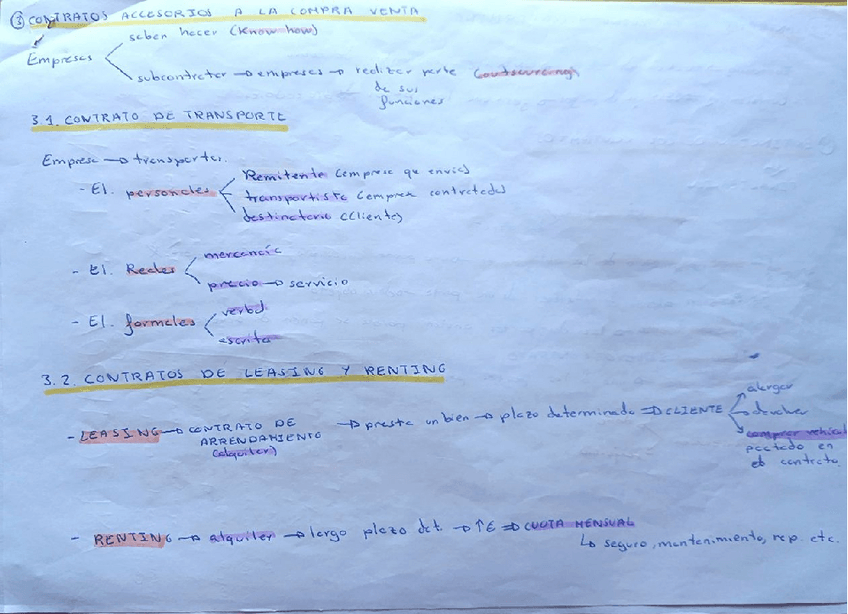 ③ CONTRATOS ACCESORIOS A LA COMPRA VENTA
saben hacer (Know how)
Empresas
subcontratar → empresas → realizar parte (outsourcing)
de sus
funciones
3.1. CONTRATO DE TRANSPORTE
Empresa → transportar.
Remitente (empresa que envía)
- El. personales
transportista (empresa contratada)
destinatario (cliente)
mercancía
- El. Reales
precio → servicio
verbal
- El. formales
escrito
3.2. CONTRATOS DE LEASING Y RENTING
alargar
- LEASING → CONTRATO DE → presta un bien → plazo determinado ⇒ CLIENTE devolver
ARRENDAMIENTO comprar vehícul
(alquiler) pactado en
el contrato
- RENTING → alquiler → largo plazo det. → ↑€ ⇒ CUOTA MENSUAL
↳ seguro, mantenimiento, rep. etc.